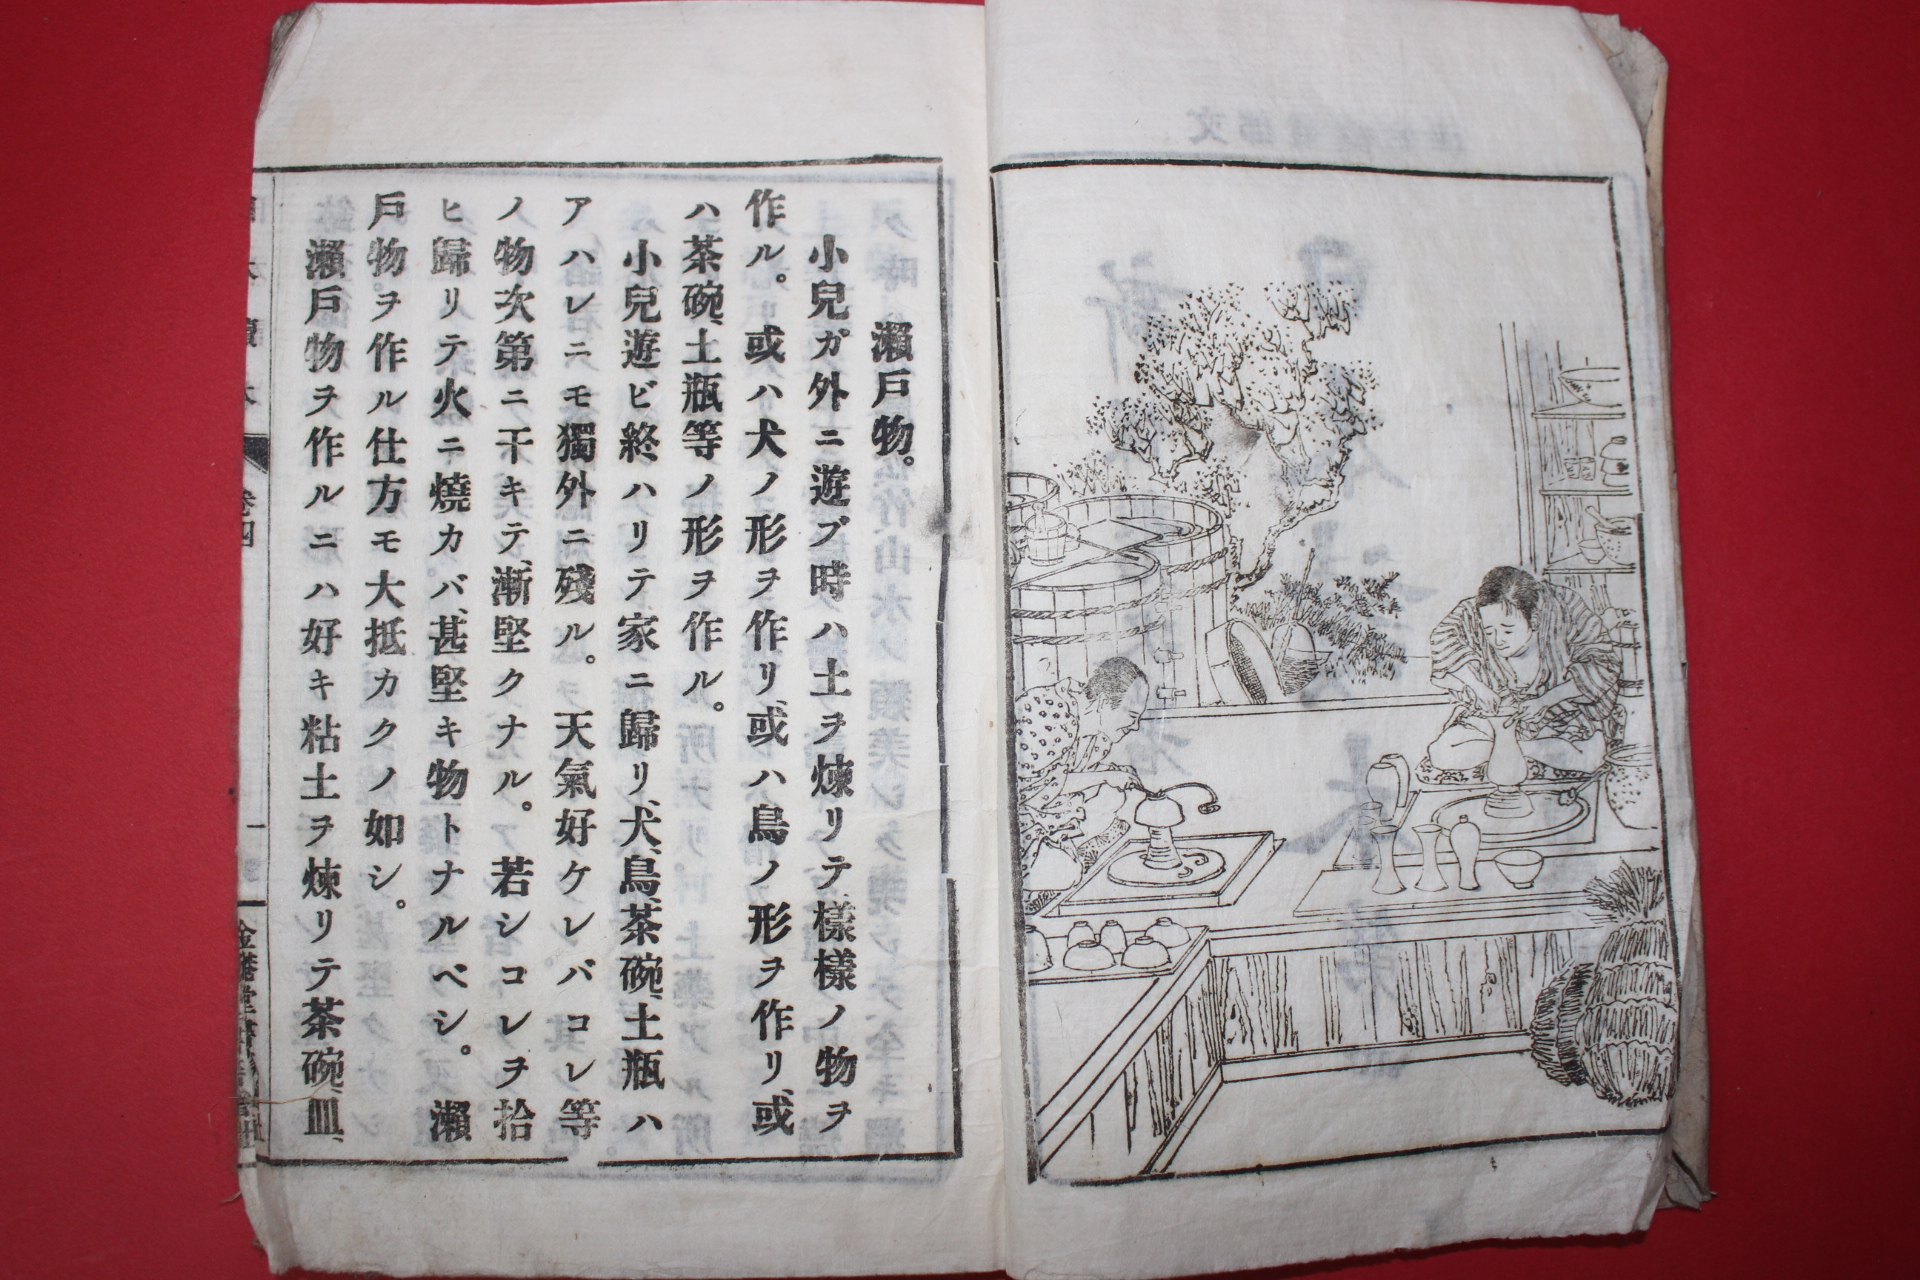 瀨戶物。
小兒ガ外ニ遊ブ時ハ土ヲ煉リテ樣樣ノ物ヲ
作ル。或ハ犬ノ形ヲ作リ、或ハ鳥ノ形ヲ作リ、或
ハ茶碗、土瓶等ノ形ヲ作ル。
小兒遊ビ終ハリテ家ニ歸リ、犬、鳥、茶碗、土瓶ハ
アハレニモ獨外ニ殘ル。天氣好ケレバコレ等
ノ物次第ニ干キテ、漸堅クナル。若シコレヲ拾
ヒ歸リテ火ニ燒カバ、甚堅キ物トナルベシ。瀨
戶物ヲ作ル仕方モ大抵カクノ如シ。
瀨戶物ヲ作ルニハ好キ粘土ヲ煉リテ茶碗、皿、
卷四